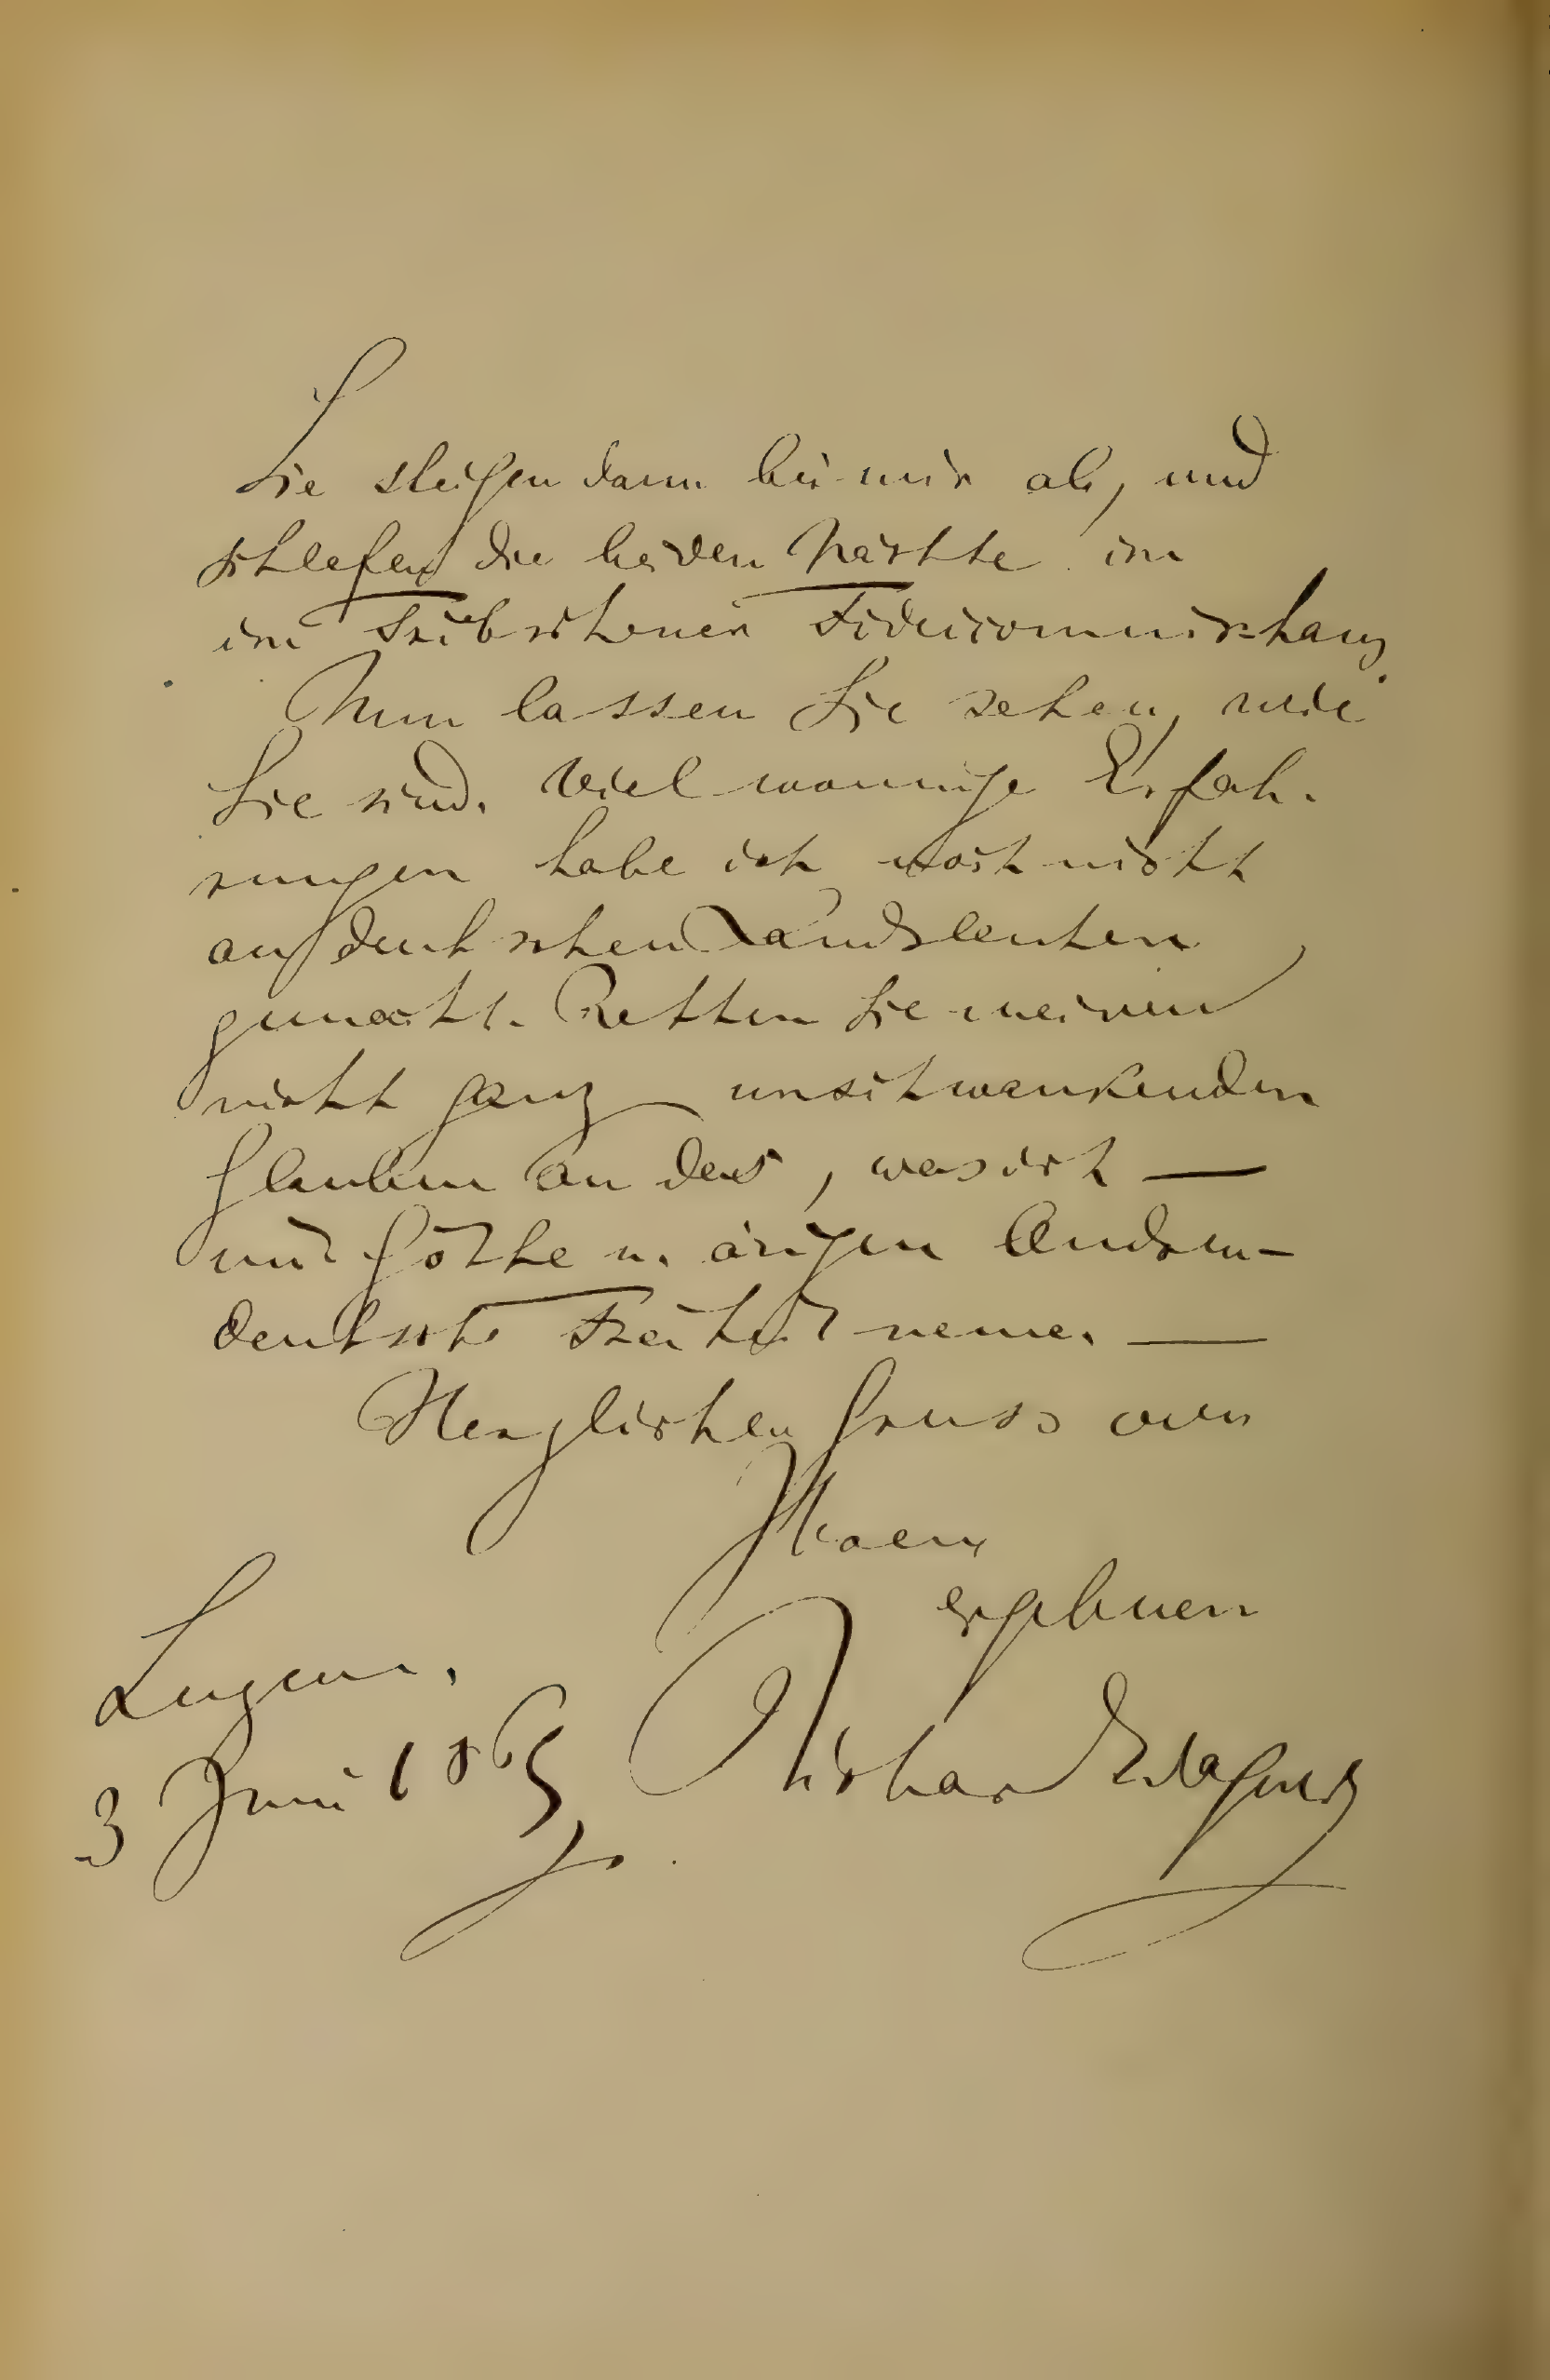 Sie steigen dann bei mir ab, und
schlafen die beiden Nächte im
im Tribschener Fideicommisshaus.
Nun lassen Sie sehen, wie
Sie sind. Viel wonnige Erfah-
rungen habe ich noch nicht
an deutschen Landsleuten
gemacht. Retten Sie meinen
nicht ganz unschwankenden
Glauben an das, was ich —
mit Göthe u. einigen Andren —
deutsche Freiheit nenne. —
Herzlichen Gruss von
Ihrem
ergebnen
Luzern.
3 Juni 1869 Richard Wagner